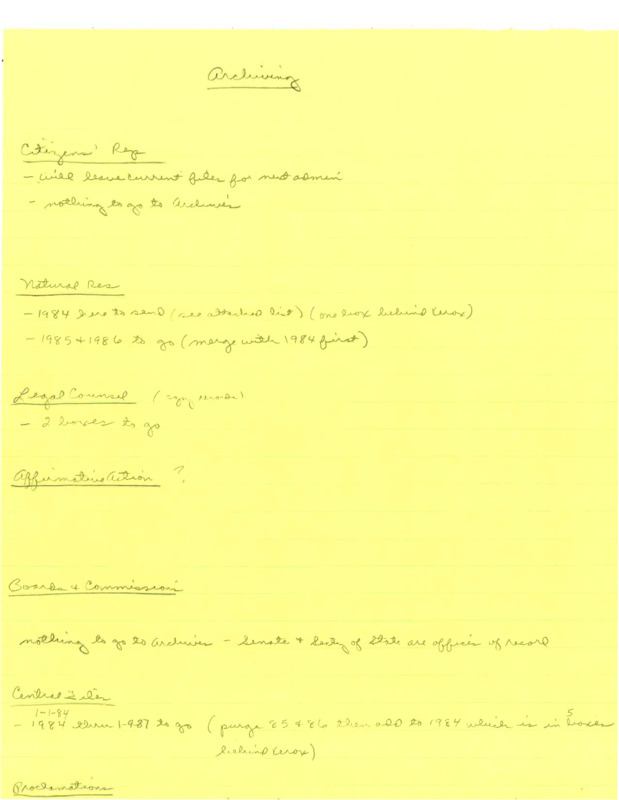 Archiving
Citizens' Rep
- will leave current files for next admin
- nothing to go to Archives
Natural Res
- 1984 here to send (see attached list) (one box behind Xerox)
- 1985 & 1986 to go (merge with 1984 first)
Legal Counsel
- 2 boxes to go
Affirmative Action ?
Boards & Commissions
nothing to go to Archives - Senate & Secty of State are offices of record
Central Files
1-1-84
- 1984 thru 1-9-87 to go (purge 85 & 86 then add to 1984 which is in 5 boxes
behind Xerox)
Proclamations